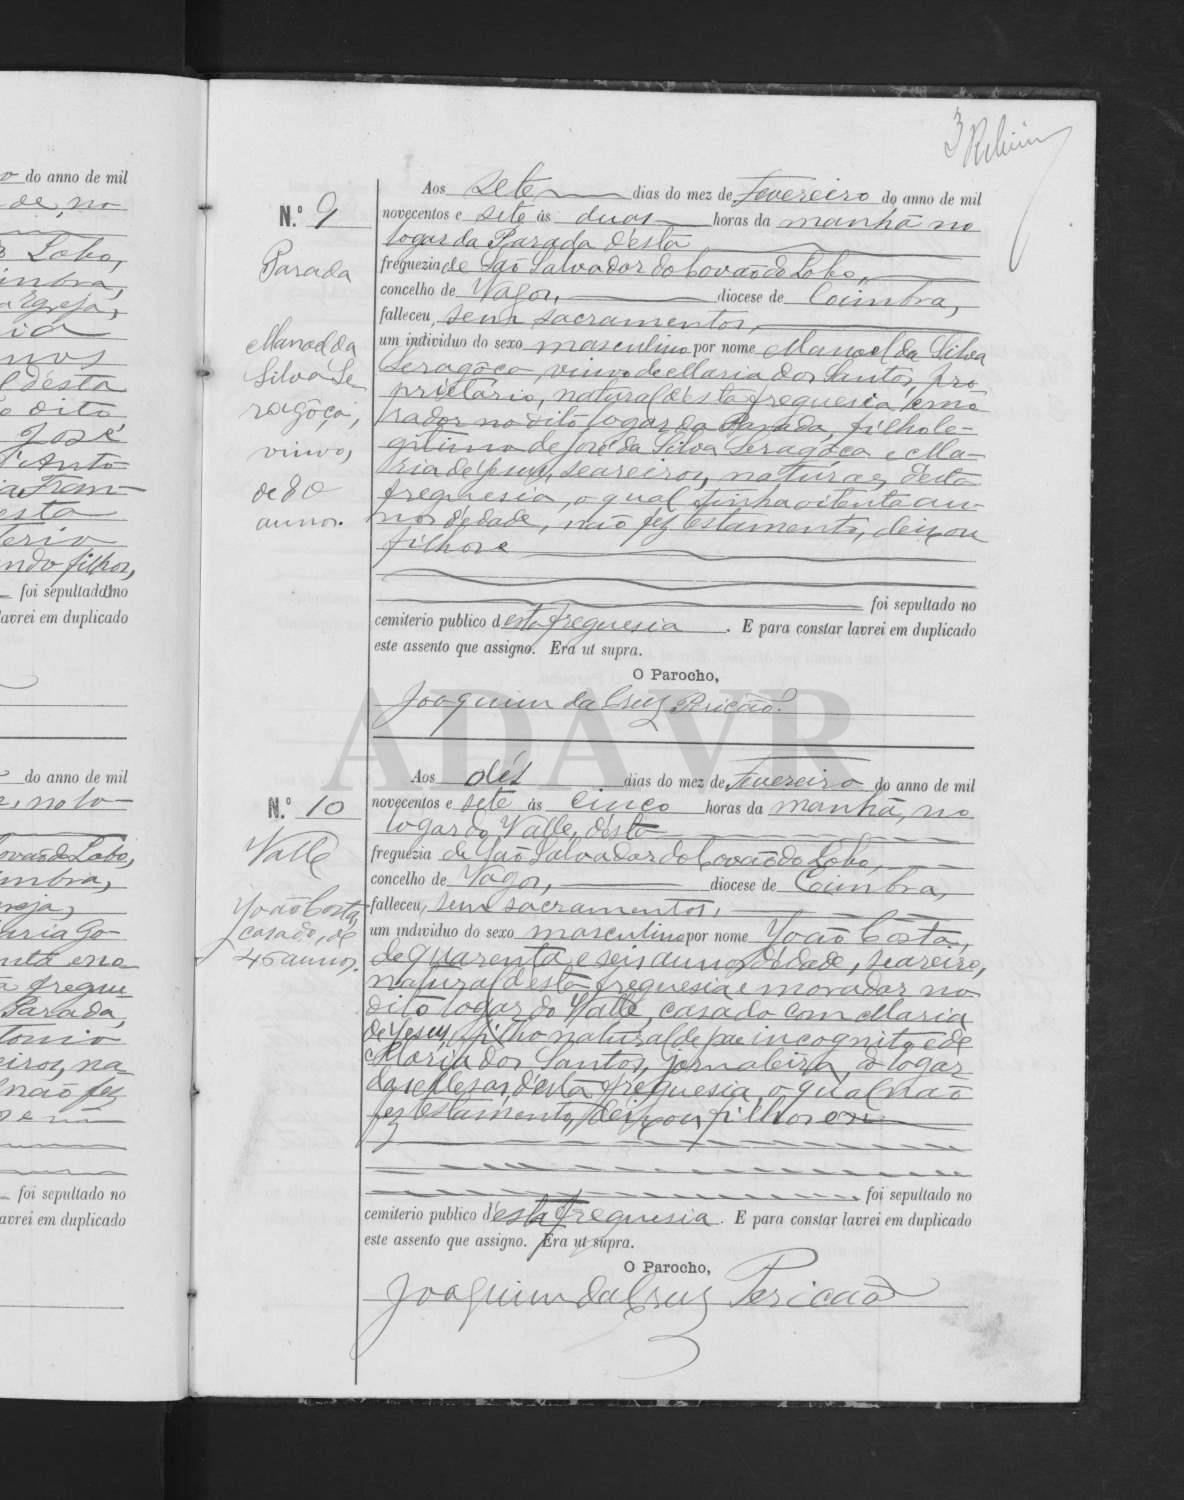 o do anno de mil
de, no
o Lobo,
imbra,
a Igreja,
ria
nnos
l d'esta
o dito
José
d'Anto
ia Fran-
esta
terio
ando filhos,
foi sepultado no
lavrei em duplicado
do anno de mil
e, no lo-
ovão do Lobo,
imbra,
reja,
aria Go-
nta e no
a fregue-
Parada,
tonio
eiros, na-
l não fez
foi sepultado no
lavrei em duplicado
3
N.º 9
Parada
Manoel da
Silva Se-
ragôça,
viuvo,
de 80
annos.
Aos sete dias do mez de Fevereiro do anno de mil
novecentos e sete ás duas horas da manhã no
logar da Parada d'esta
freguezia de São Salvador do Covão do Lobo,
concelho de Vagos, diocese de Coimbra,
falleceu, sem sacramentos,
um individuo do sexo masculino por nome Manoel da Silva
Seragôça, viuvo de Maria dos Santos, pro-
prietario, natural d'esta freguesia, e mo-
rador no dito logar da Parada, filho le-
gitimo de José da Silva Seragôça e Ma-
ria de Jesus, seareiros, naturaes d'esta
freguesia, o qual tinha oitenta an-
nos d'edade, não fez testamento, deixou
filhos e
foi sepultado no
cemiterio publico d'esta freguesia. E para constar lavrei em duplicado
este assento que assigno. Era ut supra.
O Parocho,
Joaquim da Cruz Pericão.
ADAVR
N.º 10
Valle
João Costa,
casado, de
46 annos.
Aos dés dias do mez de Fevereiro do anno de mil
novecentos e sete ás cinco horas da manhã, no
logar do Valle, d'esta
freguezia de São Salvador do Covão do Lobo,
concelho de Vagos, diocese de Coimbra,
falleceu, sem sacramentos,
um individuo do sexo masculino por nome João Costa,
de quarenta e seis annos d'edade, seareiro,
natural d'esta freguesia e morador no
dito logar do Valle, casado com Maria
de Jesus, filho natural de pae incognito e de
Maria dos Santos, jornaleira, do logar
das Mesas, d'esta freguesia, o qual não
fez testamento, deixou filhos e
foi sepultado no
cemiterio publico d'esta freguesia. E para constar lavrei em duplicado
este assento que assigno. Era ut supra.
O Parocho,
Joaquim da Cruz Pericão